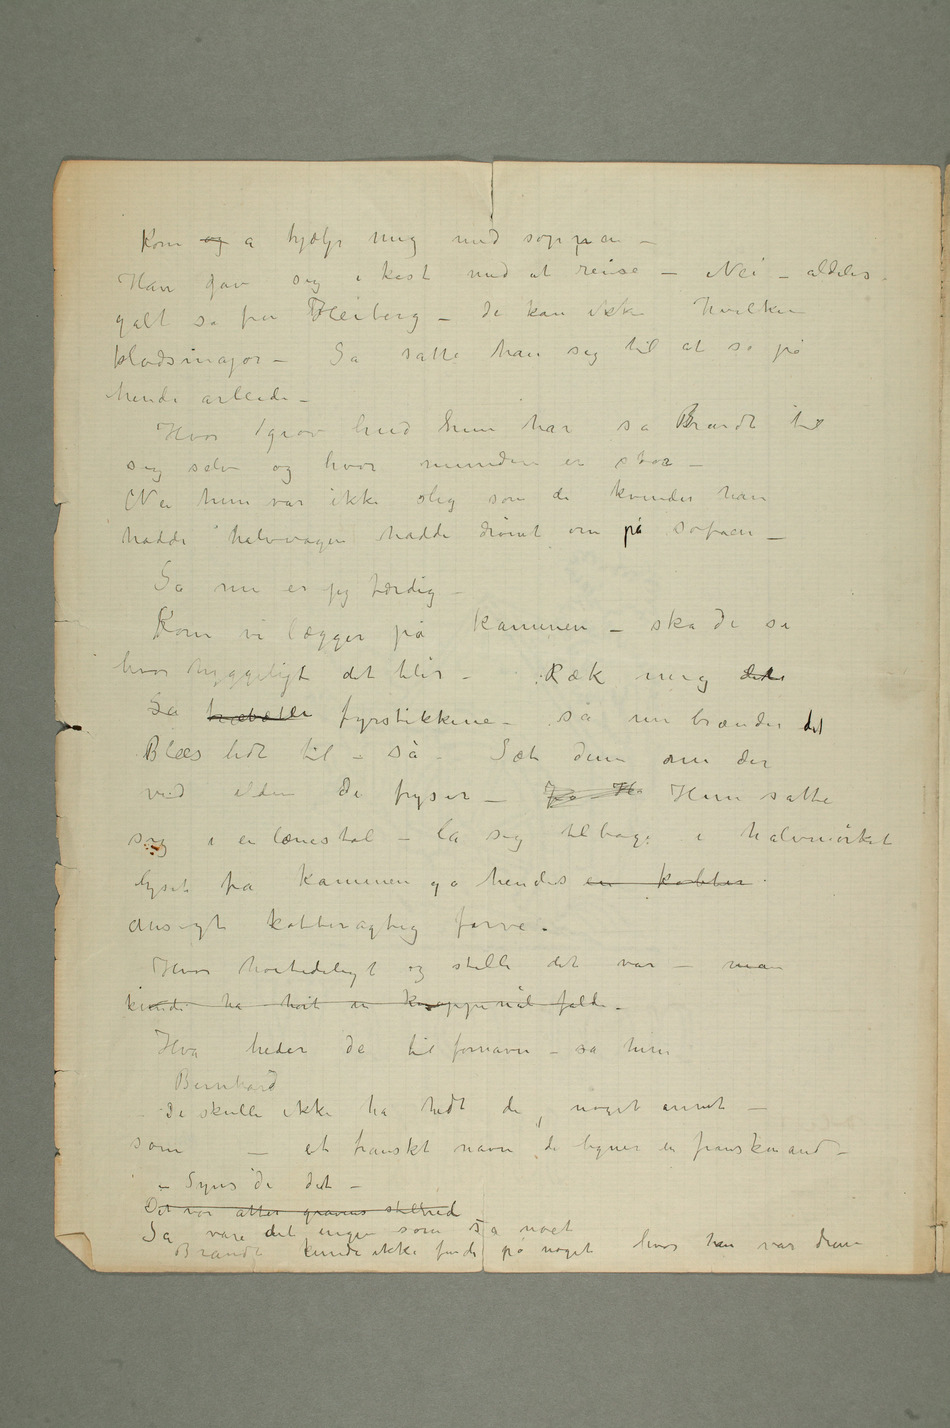 Kom og a hjælp mig med soppen –
Han gav sig i kast med at reise – Nei – aldeles
galt sa fru Heiberg – de kan ikke hvilken
klodsmajor – Sa satte han sig til at se på
hendes arbeide –
Hvor grov hud hun har sa Brandt til
sig selv og hvor munden er stor –
Nei hun var ikke slig som de kvinder han
hadde halvvagen hadde drømt om på sofaen –
Sa nu er jeg færdig –
Kom vi lægger på kaminen – ska de se
hvor hyggeligt det blir – Ræk mig
Sa fyrstikkene – så nu brænder det
Blæs lidt til – så – Sæt dem nu der
ved ilden De fryser – Hun satte
sig i en lænestol – la sig tilbage i halvmørket
lyset fra kaminen ga hendes en kobber
ansigt kobberagtig farve.
Hvor høitideligt og stille det var – man
kunde ha hørt en knappenål falde –
Hva heder De til fornavn – sa hun
Bernhard
– De skulle ikke ha hedt det, noget annet –
som – et franskt navn de ligner en franskmand –
– Syns de det –
Det var atter gravens stilhed
Sa vare det ingen som sa noet
Brandt kunde ikke finde på noget hvor han var dum